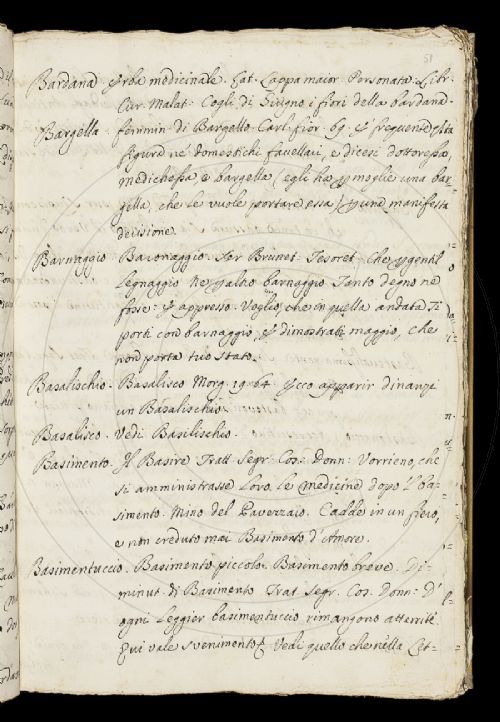 51
Bardana Erba medicinale. Lat. Lappa maior. Personata. Libr.
Cur. Malat. Cogli di Giugno i fiori della bardana.
Bargella. femmin. di Bargello. Carl. fior. 69. E frequente
figura ne domestichi favellari, e dicesi dottoressa,
medichessa, e bargella (egli ha moglie una bar-
gella, che le vuole portare essa) manifesta
derisione.
Barnaggio. Baronaggio. Ser Brunet. Tesoret. Che gentil
legnaggio Ne barnaggio Tanto degno ne
fosse: E appresso. Voglio, che in quella andata Ti
porti con barnaggio, E dimostrati maggio, che
non porta tuo stato.
Basalischio. Basilisco Morg. 19. 64. Ecco apparir dinanzi
un Basalischio.
Basalisco. Vedi Basilischio.
Basimento. Il Basire Tratt. Segr. Cos. Donn: Vorrieno, che
si amministrasse loro le medicine dopo l'ba-
simento. Mino del Pavezzaio. Cadde in un fiero,
e non creduto mai Basimento d'Amore.
Basimentuccio. Basimento piccolo. Basimento breve. Di-
minut. di Basimento Trat. Segr. Cos. Donn: D'
ogni leggier basimentuccio rimangono atterrite.
Qui vale svenimento. Vedi quello che nella Let-